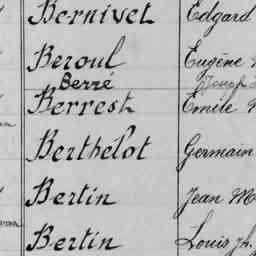 Bernivet Edgard
Beroul Eugène
Berré Joseph
Berrest Emile
Berthelot Germain
Bertin Jean M
Bertin Louis Jh.